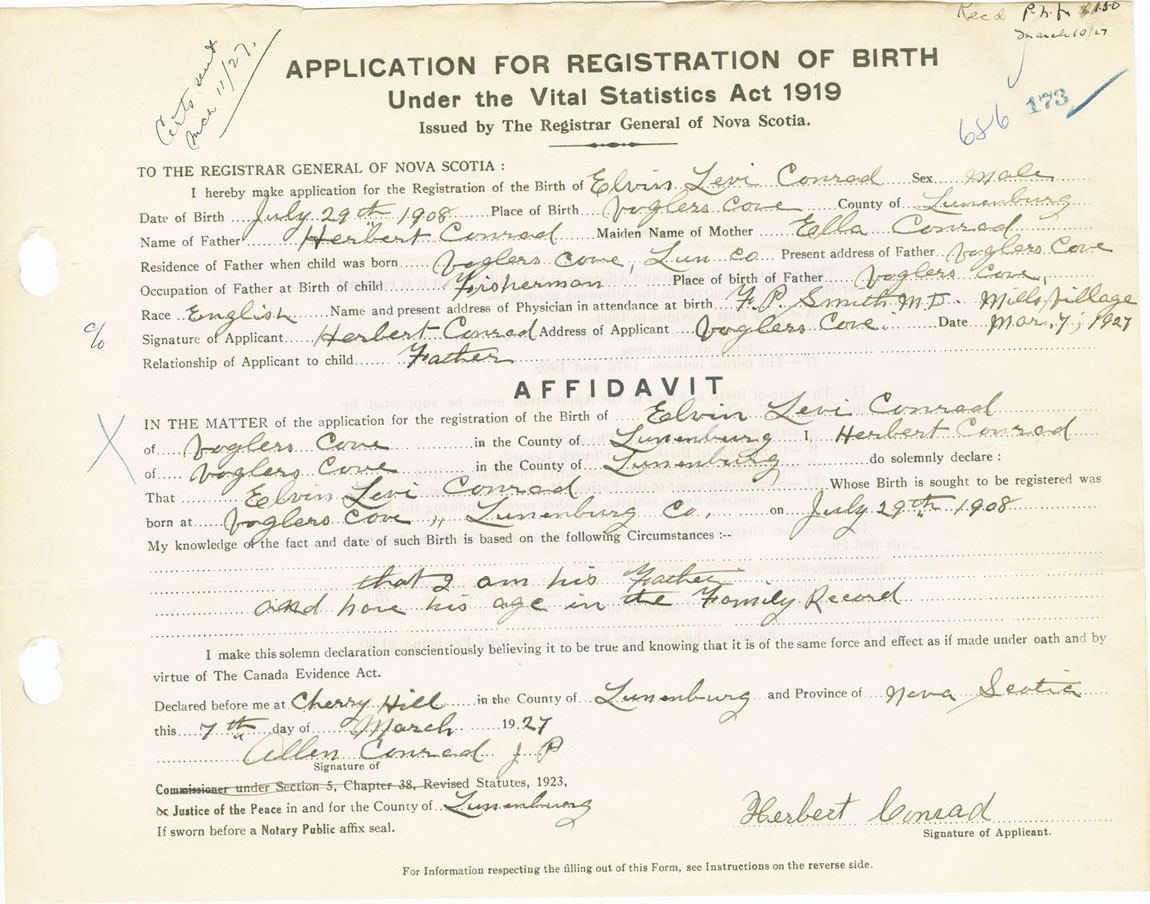 Certs sent
Mch 11/27.
Recd
March 10/27
686 173
APPLICATION FOR REGISTRATION OF BIRTH
Under the Vital Statistics Act 1919
Issued by The Registrar General of Nova Scotia.
TO THE REGISTRAR GENERAL OF NOVA SCOTIA :
I hereby make application for the Registration of the Birth of Elvin Levi Conrad Sex Male
Date of Birth July 29th 1908 Place of Birth Voglers Cove County of Lunenburg
Name of Father Herbert Conrad Maiden Name of Mother Ella Conrad
Residence of Father when child was born Voglers Cove, Lun Co Present address of Father Voglers Cove
Occupation of Father at Birth of child Fisherman Place of birth of Father Voglers Cove,
Race English Name and present address of Physician in attendance at birth F. P. Smith M.D. Mills Village
c/o Signature of Applicant Herbert Conrad Address of Applicant Voglers Cove. Date Mar. 7, 1927
Relationship of Applicant to child Father
AFFIDAVIT
X IN THE MATTER of the application for the registration of the Birth of Elvin Levi Conrad
of Voglers Cove in the County of Lunenburg I, Herbert Conrad
of Voglers Cove in the County of Lunenburg do solemnly declare :
That Elvin Levi Conrad Whose Birth is sought to be registered was
born at Voglers Cove, Lunenburg Co. on July 29th 1908
My knowledge of the fact and date of such Birth is based on the following Circumstances :--
that I am his Father
and have his age in the Family Record
I make this solemn declaration conscientiously believing it to be true and knowing that it is of the same force and effect as if made under oath and by
virtue of The Canada Evidence Act.
Declared before me at Cherry Hill in the County of Lunenburg and Province of Nova Scotia
this 7th day of March 1927
Allen Conrad J P
Signature of
Commissioner under Section 5, Chapter 38, Revised Statutes, 1923,
or Justice of the Peace in and for the County of Lunenburg
If sworn before a Notary Public affix seal.
Herbert Conrad
Signature of Applicant.
For Information respecting the filling out of this Form, see Instructions on the reverse side.